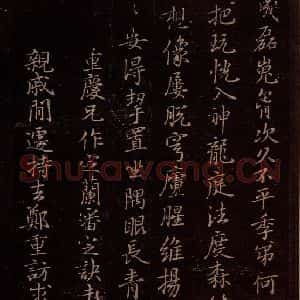 成磊嵬胷次久不平季弟何
把玩恍入神龍庭法度森
想像屢脫穹廬腥維揚
安得挈置坐隅眼長青
重慶兄作定蘭審定訣
親戚間遷轉去鄭重訪求
Shufawang.CN